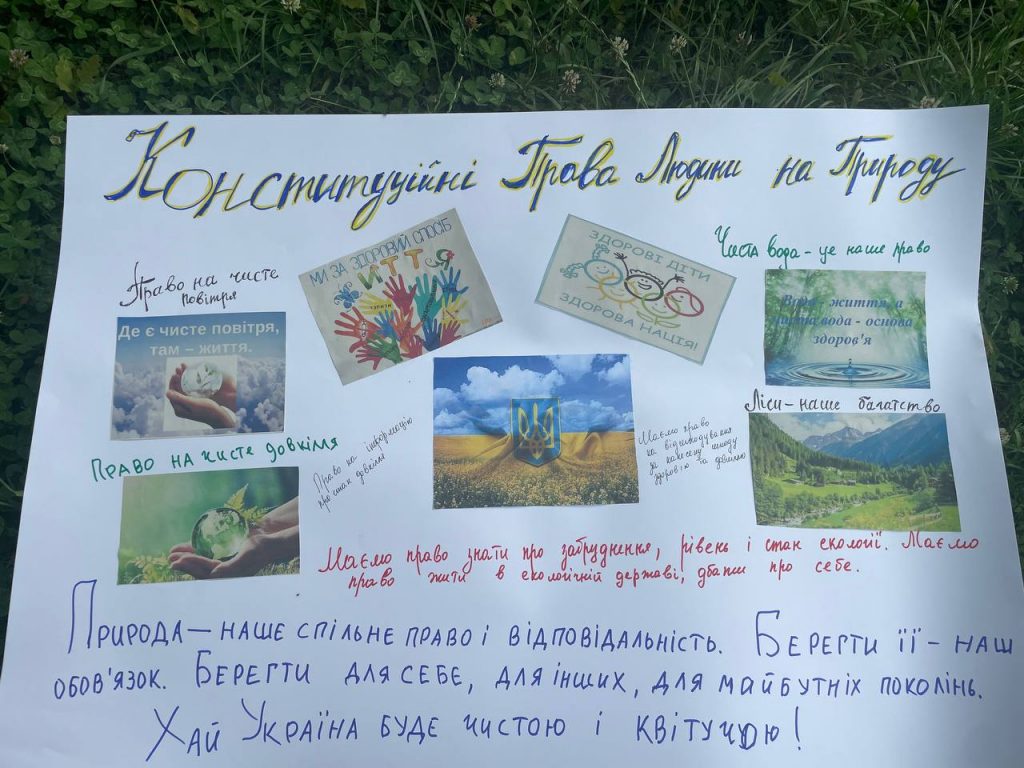 Конституційні Права Людини на Природу
Право на чисте
повітря
Де є чисте повітря,
там – життя.
МИ ЗА ЗДОРОВИЙ СПОСІБ
ЖИТТЯ
ЗДОРОВІ ДІТИ
ЗДОРОВА НАЦІЯ!
Чиста вода - це наше право
Вода - життя, а
чиста вода - основа
здоров'я
Право на чисте довкілля
Право на інформацію
про стан довкілля
Маємо право
на відшкодування
за нанесену шкоду
здоров'ю та довкіллю
Ліси - наше багатство
Маємо право знати про забруднення, рівень і стан екології. Маємо
право жити в екологічній державі, дбати про себе.
Природа – наше спільне право і відповідальність. Берегти її – наш
обов'язок. Берегти для себе, для інших, для майбутніх поколінь.
Хай Україна буде чистою і квітучою!